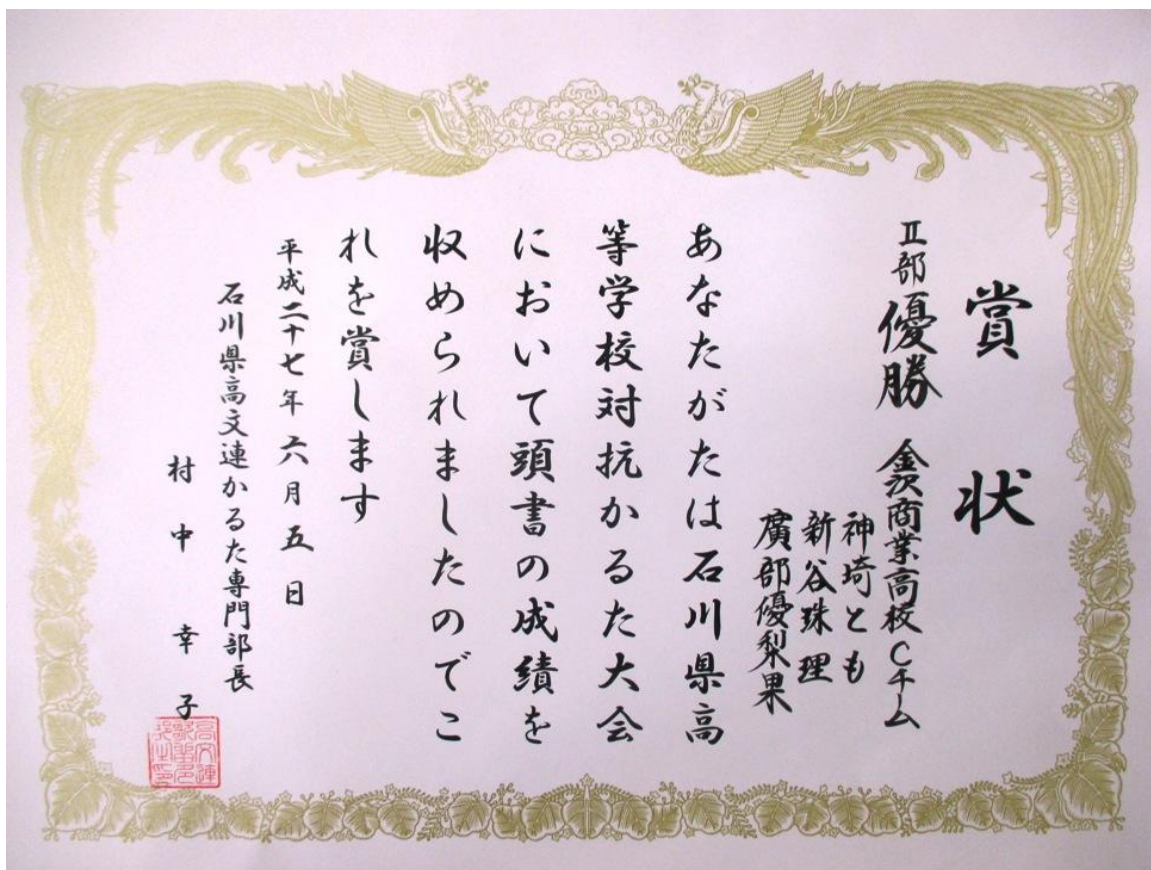 賞状
Ⅱ部 優勝 金沢商業高校Cチーム
神崎とも
新谷珠理
廣部優梨果
あなたがたは石川県高
等学校対抗かるた大会
において頭書の成績を
収められましたのでこ
れを賞します
平成二十七年六月五日
石川県高文連かるた専門部長
村中幸子